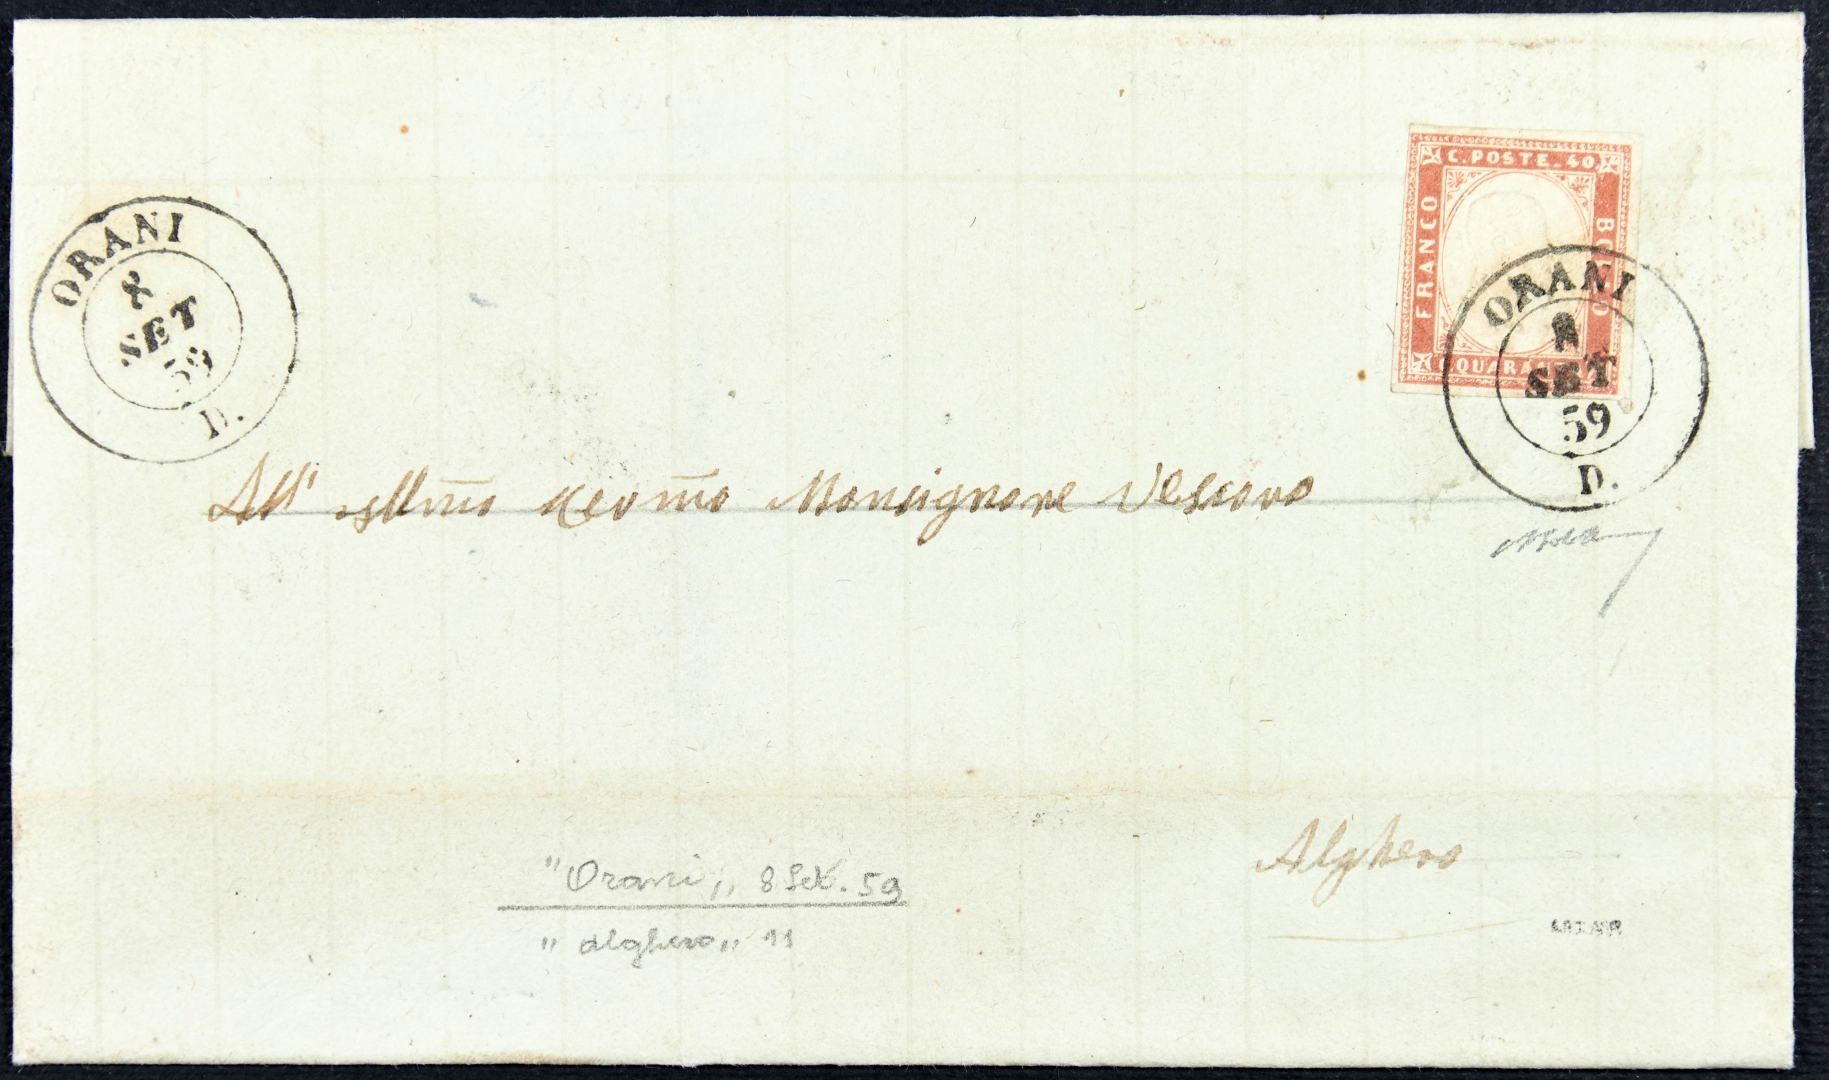 ORANI
8
SET
59
D.
C. POSTE. 40
FRANCO
BOLLO
C QUARAN
ORANI
8
SET
59
D.
All' Illm̄o Revm̄o Monsignore Vescovo
Alghero
"Orani„ 8 Set. 59
"Alghero„ 11